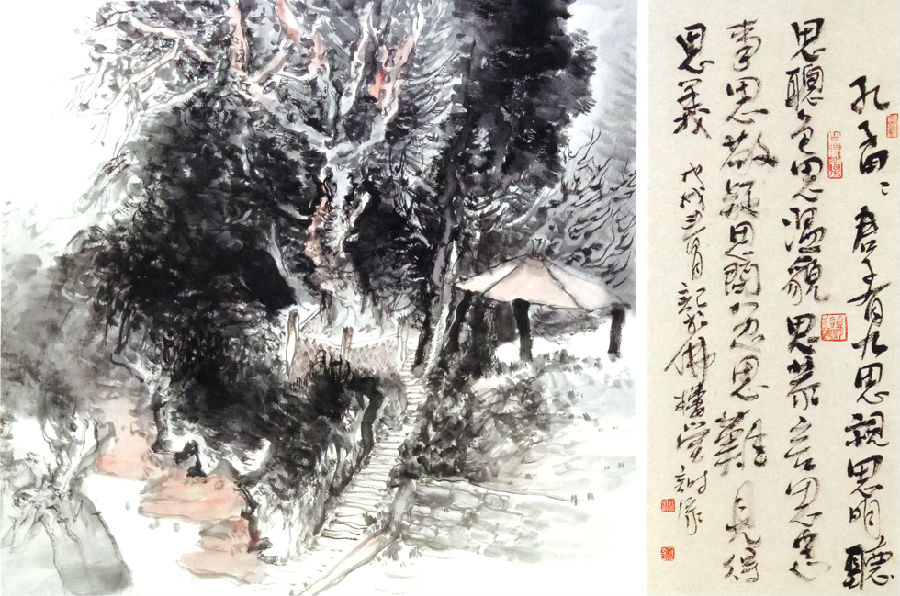 孔子曰君子有九思視思明聽
思聰色思溫貌思恭言思忠
事思敬疑思問忿思難見得
思義 戊戌 月記於佛樓